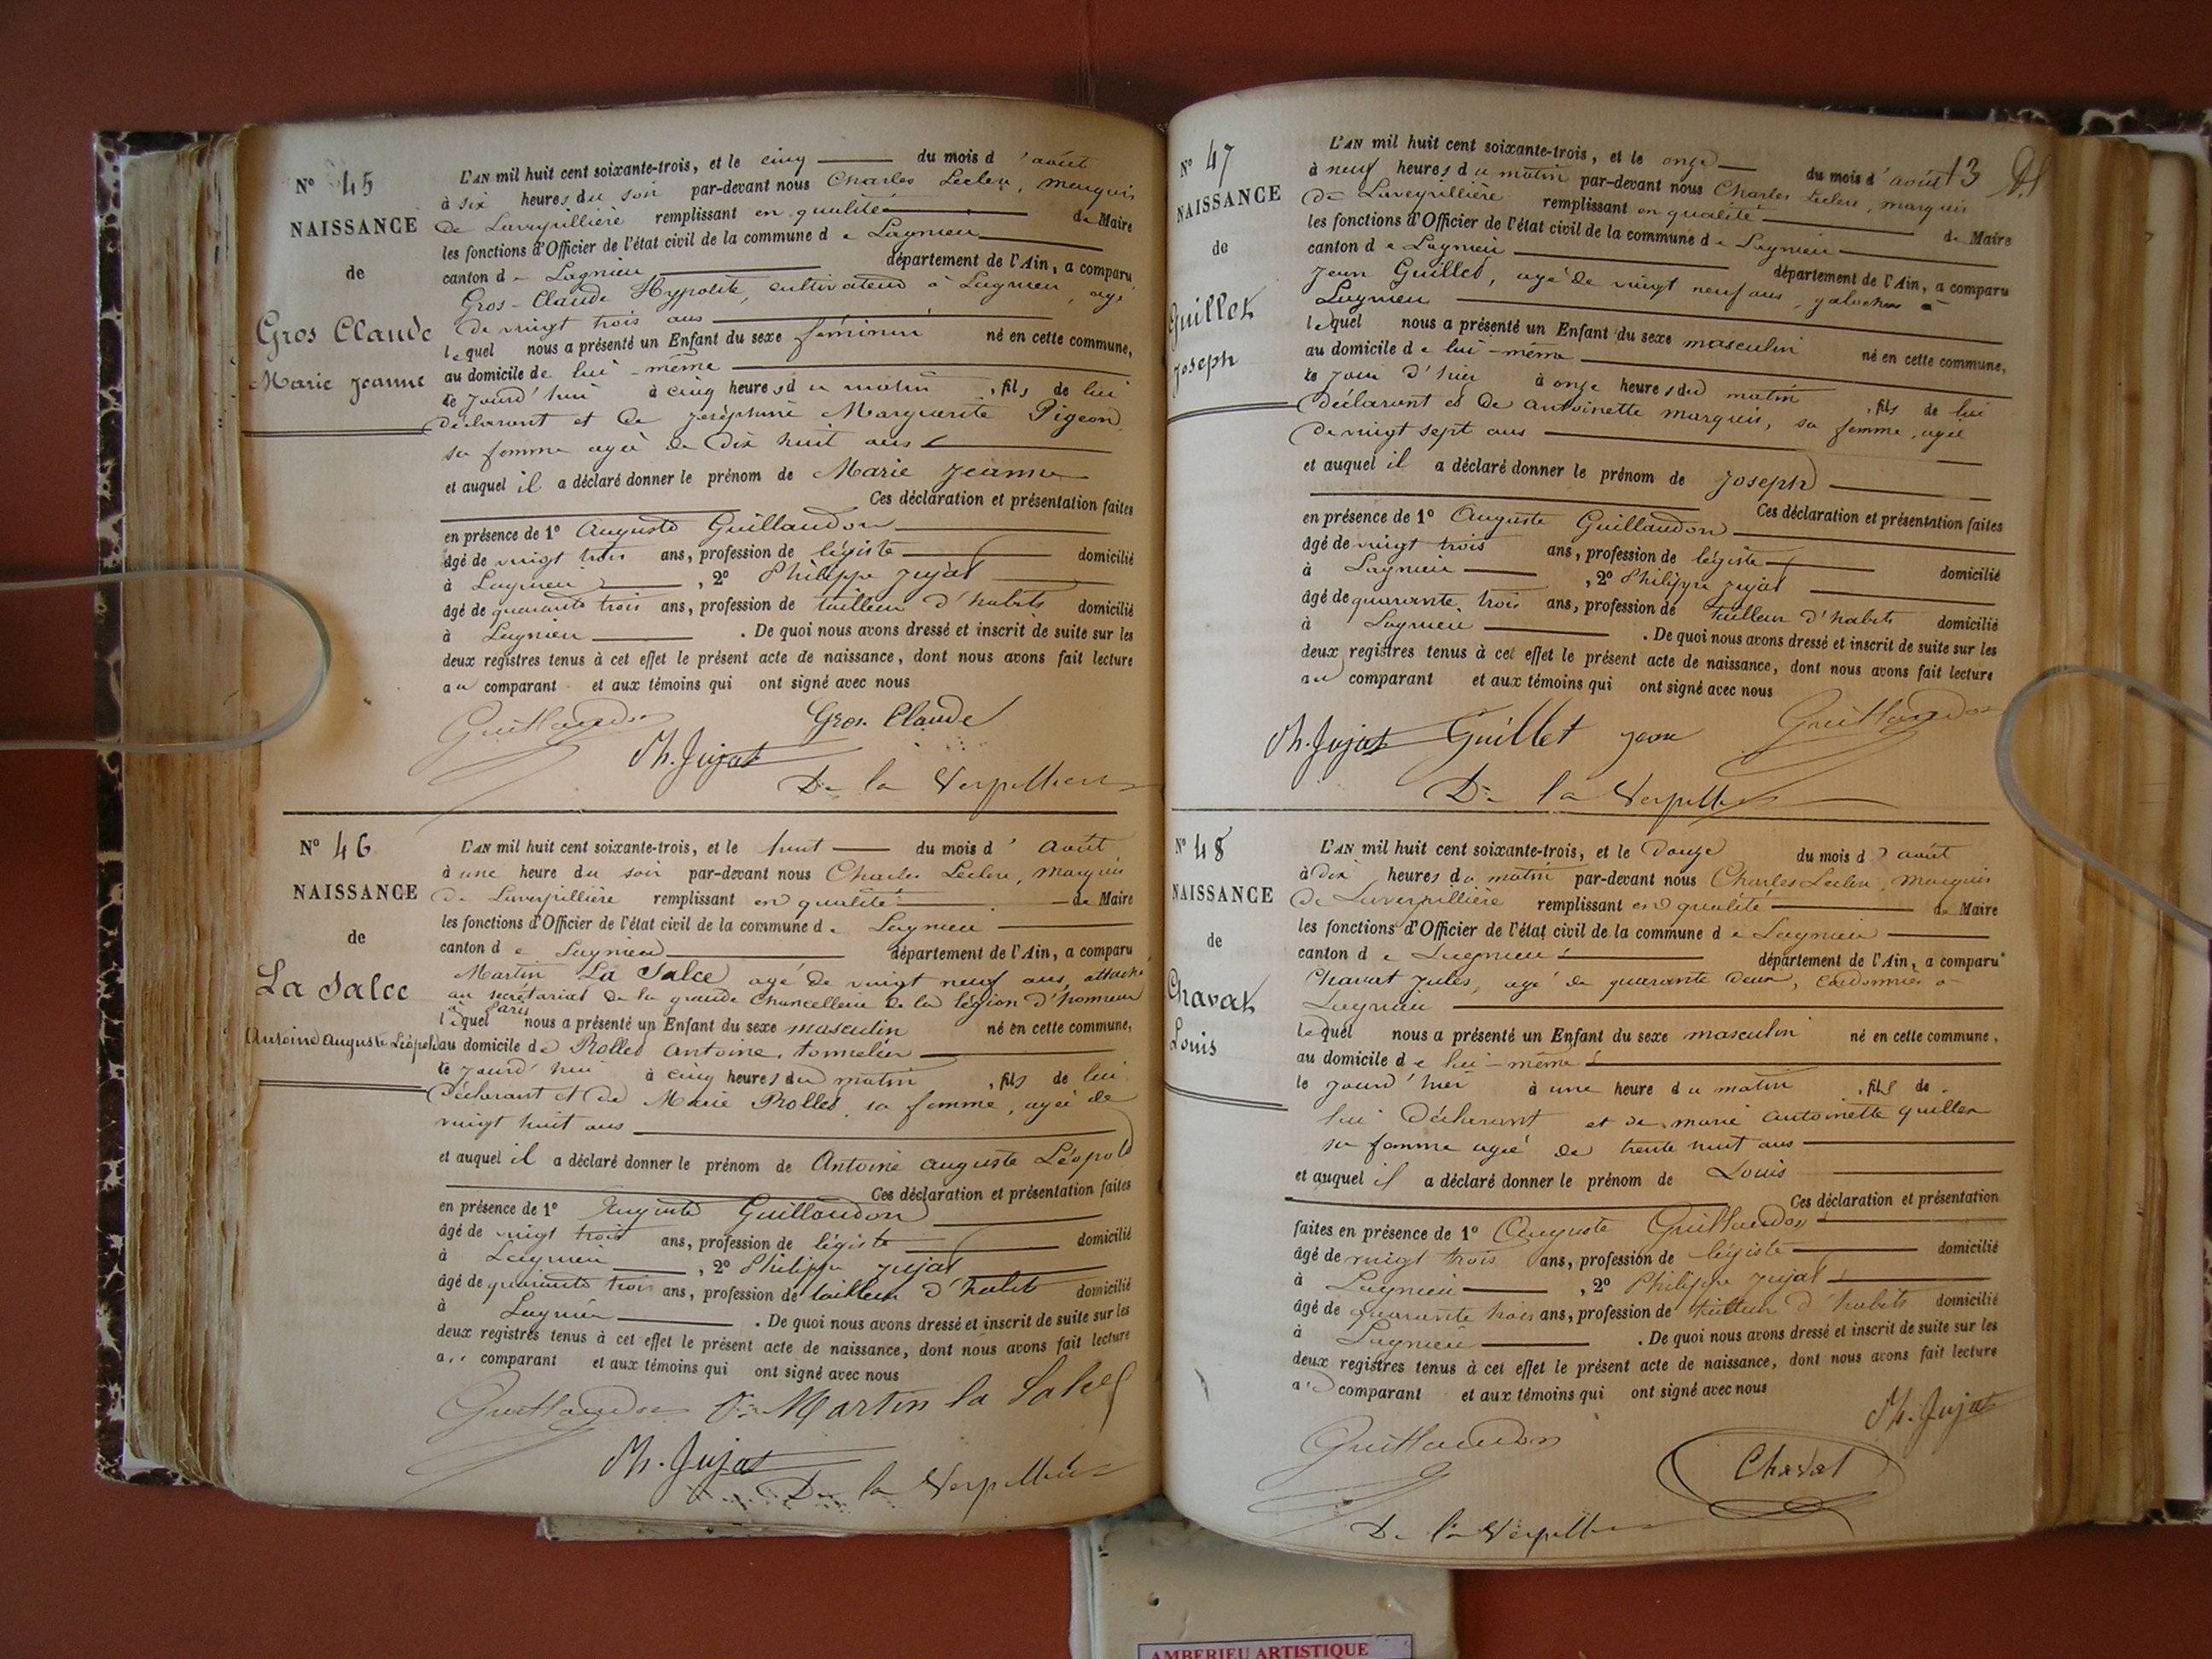 N° 45
NAISSANCE
de
Gros Claude
Marie Jeanne
L'AN mil huit cent soixante-trois, et le cinq du mois d'août
à six heures du soir par-devant nous Charles Leclerc, marquis
de Laverpillière remplissant en qualité de Maire
les fonctions d'Officier de l'état civil de la commune de Lagnieu
canton de Lagnieu département de l'Ain, a comparu
Gros-Claude Hyppolite, cultivateur à Lagnieu, agé
de vingt trois ans
lequel nous a présenté un Enfant du sexe féminin né en cette commune,
au domicile de lui-même
le jourd'hui à cinq heures du matin, fils de lui
déclarant et de Joséphine Marguerite Pigeon,
sa femme agée de dix huit ans
et auquel il a déclaré donner le prénom de Marie Jeanne
Ces déclaration et présentation faites
en présence de 1° Auguste Guillaudon
âgé de vingt trois ans, profession de légiste domicilié
à Lagnieu, 2° Philippe Jujat
âgé de quarante trois ans, profession de tailleur d'habits domicilié
à Lagnieu . De quoi nous avons dressé et inscrit de suite sur les
deux registres tenus à cet effet le présent acte de naissance, dont nous avons fait lecture
au comparant et aux témoins qui ont signé avec nous
Guillaudon Gros Claude
Ph. Jujat
De la Verpilliere
N° 46
NAISSANCE
de
La Salce
Antoine Auguste Léopold
L'AN mil huit cent soixante-trois, et le huit du mois d'août
à une heure du soir par-devant nous Charles Leclerc, marquis
de Laverpillière remplissant en qualité de Maire
les fonctions d'Officier de l'état civil de la commune de Lagnieu
canton de Lagnieu département de l'Ain, a comparu
Martin La Salce agé de vingt neuf ans, attaché
au secrétariat de la grande chancellerie de la légion d'honneur
à Paris
lequel nous a présenté un Enfant du sexe masculin né en cette commune,
au domicile de Rollet Antoine, tonnelier
le jourd'hui à cinq heures du matin, fils de lui
déclarant et de Marie Rollet, sa femme, agée de
vingt huit ans
et auquel il a déclaré donner le prénom de Antoine Auguste Léopold
Ces déclaration et présentation faites
en présence de 1° Auguste Guillaudon
âgé de vingt trois ans, profession de légiste domicilié
à Lagnieu, 2° Philippe Jujat
âgé de quarante trois ans, profession de tailleur d'habits domicilié
à Lagnieu . De quoi nous avons dressé et inscrit de suite sur les
deux registres tenus à cet effet le présent acte de naissance, dont nous avons fait lecture
au comparant et aux témoins qui ont signé avec nous
Guillaudon Martin la Salce
Ph. Jujat
De la Verpilliere
N° 47
NAISSANCE
de
Guillet
Joseph
L'AN mil huit cent soixante-trois, et le onze du mois d'août 13
à neuf heures du matin par-devant nous Charles Leclerc, marquis
de Laverpillière remplissant en qualité de Maire
les fonctions d'Officier de l'état civil de la commune de Lagnieu
canton de Lagnieu département de l'Ain, a comparu
Jean Guillet, agé de vingt neuf ans, galocher à
Lagnieu
lequel nous a présenté un Enfant du sexe masculin né en cette commune,
au domicile de lui-même
le jour d'hier à onze heures du matin, fils de lui
déclarant et de Antoinette Marquis, sa femme, agée
de vingt sept ans
et auquel il a déclaré donner le prénom de Joseph
Ces déclaration et présentation faites
en présence de 1° Auguste Guillaudon
âgé de vingt trois ans, profession de légiste domicilié
à Lagnieu, 2° Philippe Jujat
âgé de quarante trois ans, profession de tailleur d'habits domicilié
à Lagnieu . De quoi nous avons dressé et inscrit de suite sur les
deux registres tenus à cet effet le présent acte de naissance, dont nous avons fait lecture
au comparant et aux témoins qui ont signé avec nous
Ph. Jujat Guillet Jean Guillaudon
De la Verpilliere
N° 48
NAISSANCE
de
Chavat
Louis
L'AN mil huit cent soixante-trois, et le douze du mois d'août
à dix heures du matin par-devant nous Charles Leclerc, Marquis
de Laverpillière remplissant en qualité de Maire
les fonctions d'Officier de l'état civil de la commune de Lagnieu
canton de Lagnieu département de l'Ain, a comparu
Chavat Jules, agé de quarante deux, cordonnier à
Lagnieu
lequel nous a présenté un Enfant du sexe masculin né en cette commune,
au domicile de lui-même
le jourd'hier à une heure du matin, fils de
lui déclarant et de marie Antoinette Guillet
sa femme agée de trente huit ans
et auquel il a déclaré donner le prénom de Louis
Ces déclaration et présentation
faites en présence de 1° Auguste Guillaudon
âgé de vingt trois ans, profession de légiste domicilié
à Lagnieu, 2° Philippe Jujat
âgé de quarante trois ans, profession de tailleur d'habits domicilié
à Lagnieu . De quoi nous avons dressé et inscrit de suite sur les
deux registres tenus à cet effet le présent acte de naissance, dont nous avons fait lecture
au comparant et aux témoins qui ont signé avec nous
Ph. Jujat
Guillaudon
Chavat
De la Verpilliere
AMBERIEU ARTISTIQUE